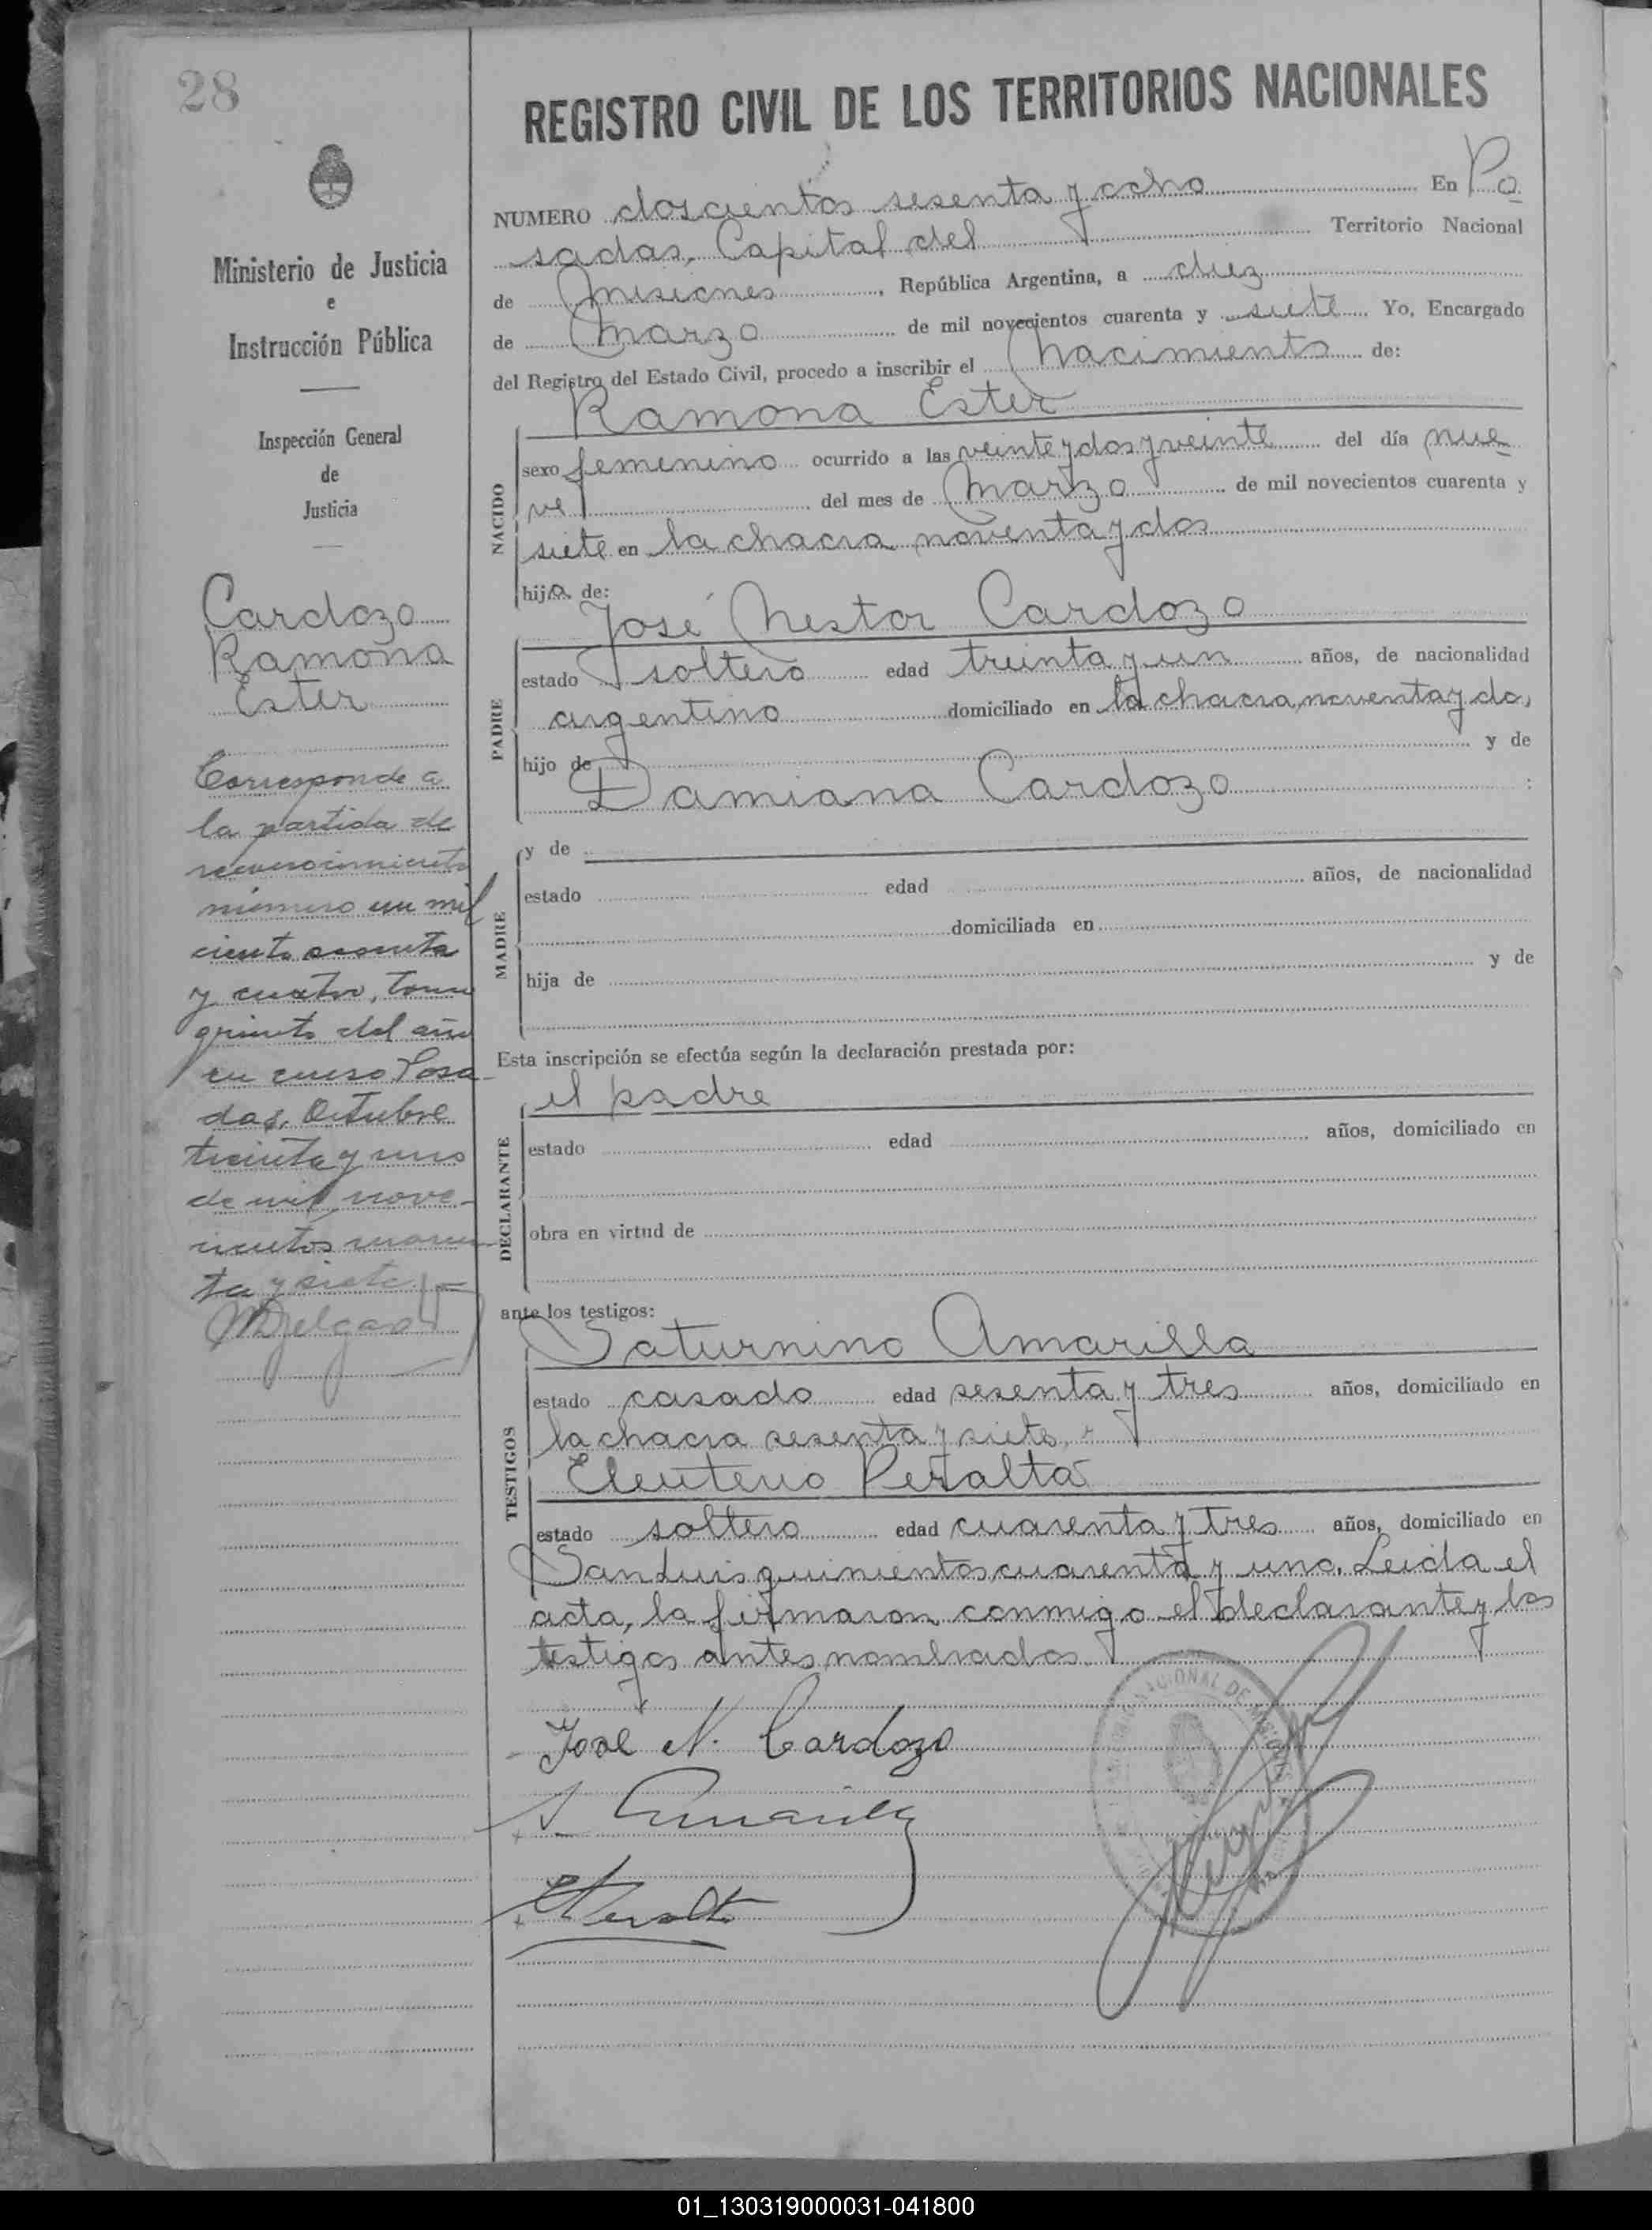 28
Ministerio de Justicia
e
Instrucción Pública
Inspección General
de
Justicia
Cardozo
Ramona
Ester
Corresponde a
la partida de
reconocimiento
número un mil
ciento sesenta
y cuatro, tomo
quinto del año
en curso Posa
das, Octubre
treinta y uno
de mil nove-
cientos cuaren
ta y siete
MDelgado
REGISTRO CIVIL DE LOS TERRITORIOS NACIONALES
NUMERO doscientos sesenta y ocho En Po
sadas, Capital del Territorio Nacional
de Misiones, República Argentina, a diez
de Marzo de mil novecientos cuarenta y siete Yo, Encargado
del Registro del Estado Civil, procedo a inscribir el nacimiento de:
Ramona Ester
NACIDO
sexo femenino ocurrido a las veinte y dos y veinte del día nue
ve del mes de Marzo de mil novecientos cuarenta y
siete en la chacra noventa y dos
hija de:
José Nestor Cardozo
PADRE
estado soltero edad treinta y un años, de nacionalidad
argentino domiciliado en la chacra noventa y dos,
hijo de y de
Damiana Cardozo :
MADRE
y de
estado edad años, de nacionalidad
domiciliada en
hija de y de
Esta inscripción se efectúa según la declaración prestada por:
el padre
DECLARANTE
estado edad años, domiciliado en
obra en virtud de
ante los testigos:
Saturnino Amarilla
TESTIGOS
estado casado edad sesenta y tres años, domiciliado en
la chacra sesenta y siete, y
Eleuterio Peralta
estado soltero edad cuarenta y tres años, domiciliado en
San Luis quinientos cuarenta y uno. Leida el
acta, la firmaron conmigo el declarante y los
testigos antes nombrados.
José N. Cardozo
S Amarilla
E Peralta
NACIONAL DE MISIONES
01_130319000031-041800